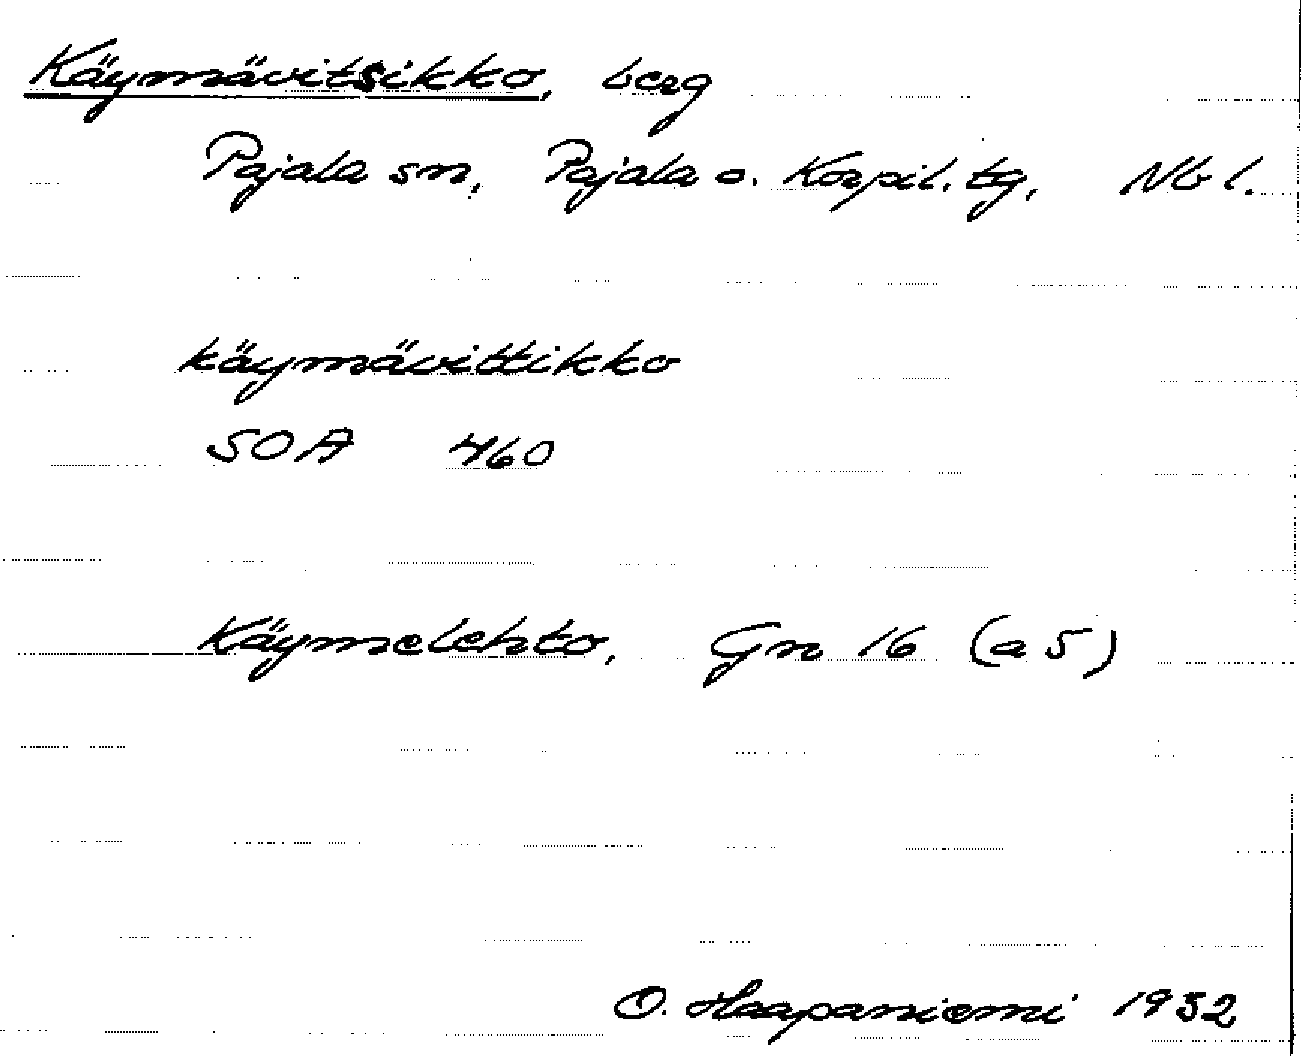 Käymävitsikko, berg
Pajala sn, Pajala o. Korpil. tg, Nb l.
käymävittikko
SOA 460
Käymelehto, Gn 16 (a 5)
O. Haapaniemi 1932